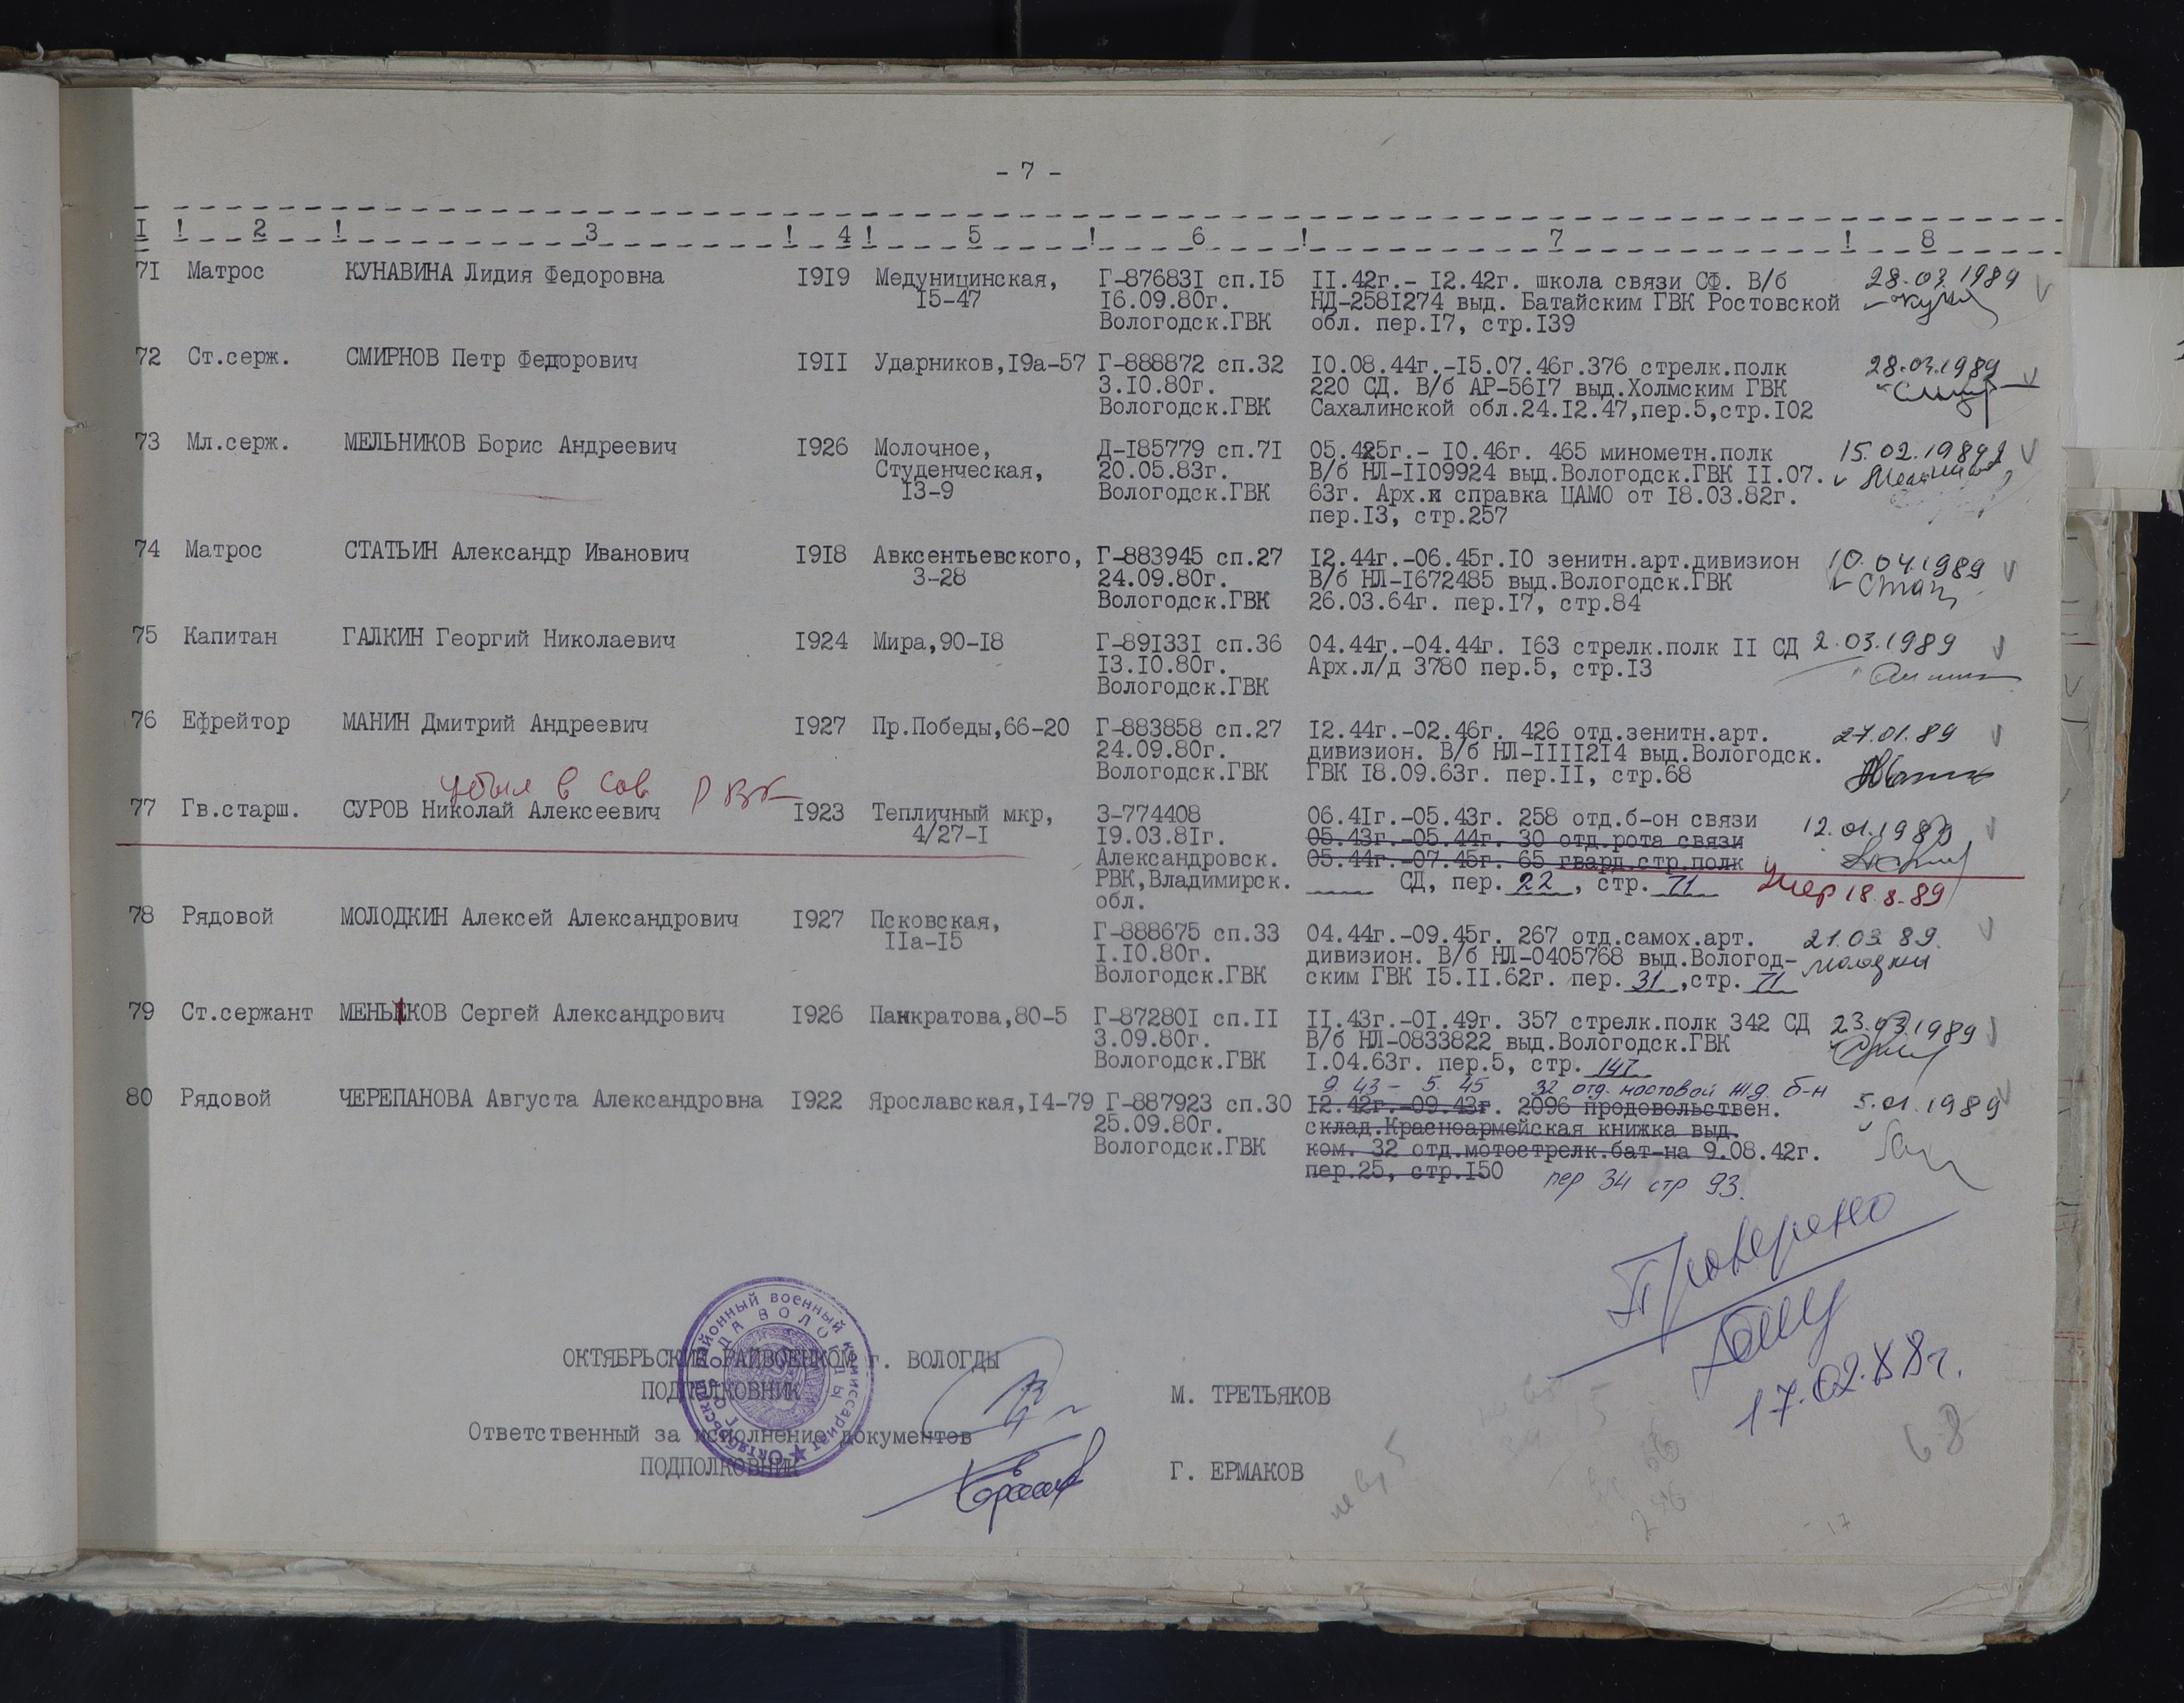 - 7 -
I ! 2 ! 3 ! 4 ! 5 ! 6 ! 7 ! 8
7I Матрос КУНАВИНА Лидия Федоровна I9I9 Медуницинская, Г-87683I сп.I5 II.42г.- I2.42г. школа связи СФ. В/б 28.03.1989
I5-47 I6.09.80г. НД-258I274 выд. Батайским ГВК Ростовской
Вологодск.ГВК обл. пер.I7, стр.I39
72 Ст.серж. СМИРНОВ Петр Федорович I9II Ударников,I9а-57 Г-888872 сп.32 I0.08.44г.-I5.07.46г.376 стрелк.полк 28.03.1989
3.I0.80г. 220 СД. В/б АР-56I7 выд.Холмским ГВК
Вологодск.ГВК Сахалинской обл.24.I2.47,пер.5,стр.I02
73 Мл.серж. МЕЛЬНИКОВ Борис Андреевич I926 Молочное, Д-I85779 сп.7I 05.425г.- I0.46г. 465 минометн.полк 15.02.1989
Студенческая, 20.05.83г. В/б НЛ-II09924 выд.Вологодск.ГВК II.07.
I3-9 Вологодск.ГВК 63г. Арх. справка ЦАМО от I8.03.82г.
пер.I3, стр.257
74 Матрос СТАТЬИН Александр Иванович I9I8 Авксентьевского, Г-883945 сп.27 I2.44г.-06.45г.I0 зенитн.арт.дивизион 10.04.1989
3-28 24.09.80г. В/б НЛ-I672485 выд.Вологодск.ГВК
Вологодск.ГВК 26.03.64г. пер.I7, стр.84
75 Капитан ГАЛКИН Георгий Николаевич I924 Мира,90-I8 Г-89I33I сп.36 04.44г.-04.44г. I63 стрелк.полк II СД 2.03.1989
I3.I0.80г. Арх.л/д 3780 пер.5, стр.I3
Вологодск.ГВК
76 Ефрейтор МАНИН Дмитрий Андреевич I927 Пр.Победы,66-20 Г-883858 сп.27 I2.44г.-02.46г. 426 отд.зенитн.арт. 27.01.89
24.09.80г. дивизион. В/б НЛ-IIII2I4 выд.Вологодск.
Вологодск.ГВК ГВК I8.09.63г. пер.II, стр.68
убыл в Сов РВК
77 Гв.старш. СУРОВ Николай Алексеевич I923 Тепличный мкр, З-774408 06.4Iг.-05.43г. 258 отд.б-он связи 12.01.1989
4/27-I I9.03.8Iг. 05.43г.-05.44г. 30 отд.рота связи
Александровск. 05.44г.-07.45г. 65 гвард.стр.полк
РВК,Владимирск. СД, пер. 22 , стр. 71 Умер 18.8.89
обл.
78 Рядовой МОЛОДКИН Алексей Александрович I927 Псковская, Г-888675 сп.33 04.44г.-09.45г. 267 отд.самох.арт. 21.03.89.
IIа-I5 I.I0.80г. дивизион. В/б НЛ-0405768 выд.Вологод-
Вологодск.ГВК ским ГВК I5.II.62г. пер. 31 ,стр. 71
79 Ст.сержант МЕНЬКОВ Сергей Александрович I926 Панкратова,80-5 Г-87280I сп.II II.43г.-0I.49г. 357 стрелк.полк 342 СД 23.03.1989
3.09.80г. В/б НЛ-0833822 выд.Вологодск.ГВК
Вологодск.ГВК I.04.63г. пер.5, стр. 147
9. 43 - 5. 45 32 отд. мостовой ж.д. б-н
80 Рядовой ЧЕРЕПАНОВА Августа Александровна I922 Ярославская,I4-79 Г-887923 сп.30 I2.42г.-09.43г. 2096 продовольствен. 5.01.1989
25.09.80г. склад.Красноармейская книжка выд.
Вологодск.ГВК ком. 32 отд.мотострелк.бат-на 9.08.42г.
пер.25, стр.I50 пер 34 стр 93.
Проверено
17.02.88г.
68
ОКТЯБРЬСКИЙ РАЙВОЕНКОМ г. ВОЛОГДЫ
ПОДПОЛКОВНИК М. ТРЕТЬЯКОВ
Ответственный за исполнение документов
ПОДПОЛКОВНИК Г. ЕРМАКОВ
Октябрьский районный военный комиссариат
ГОРОДА ВОЛОГДЫ